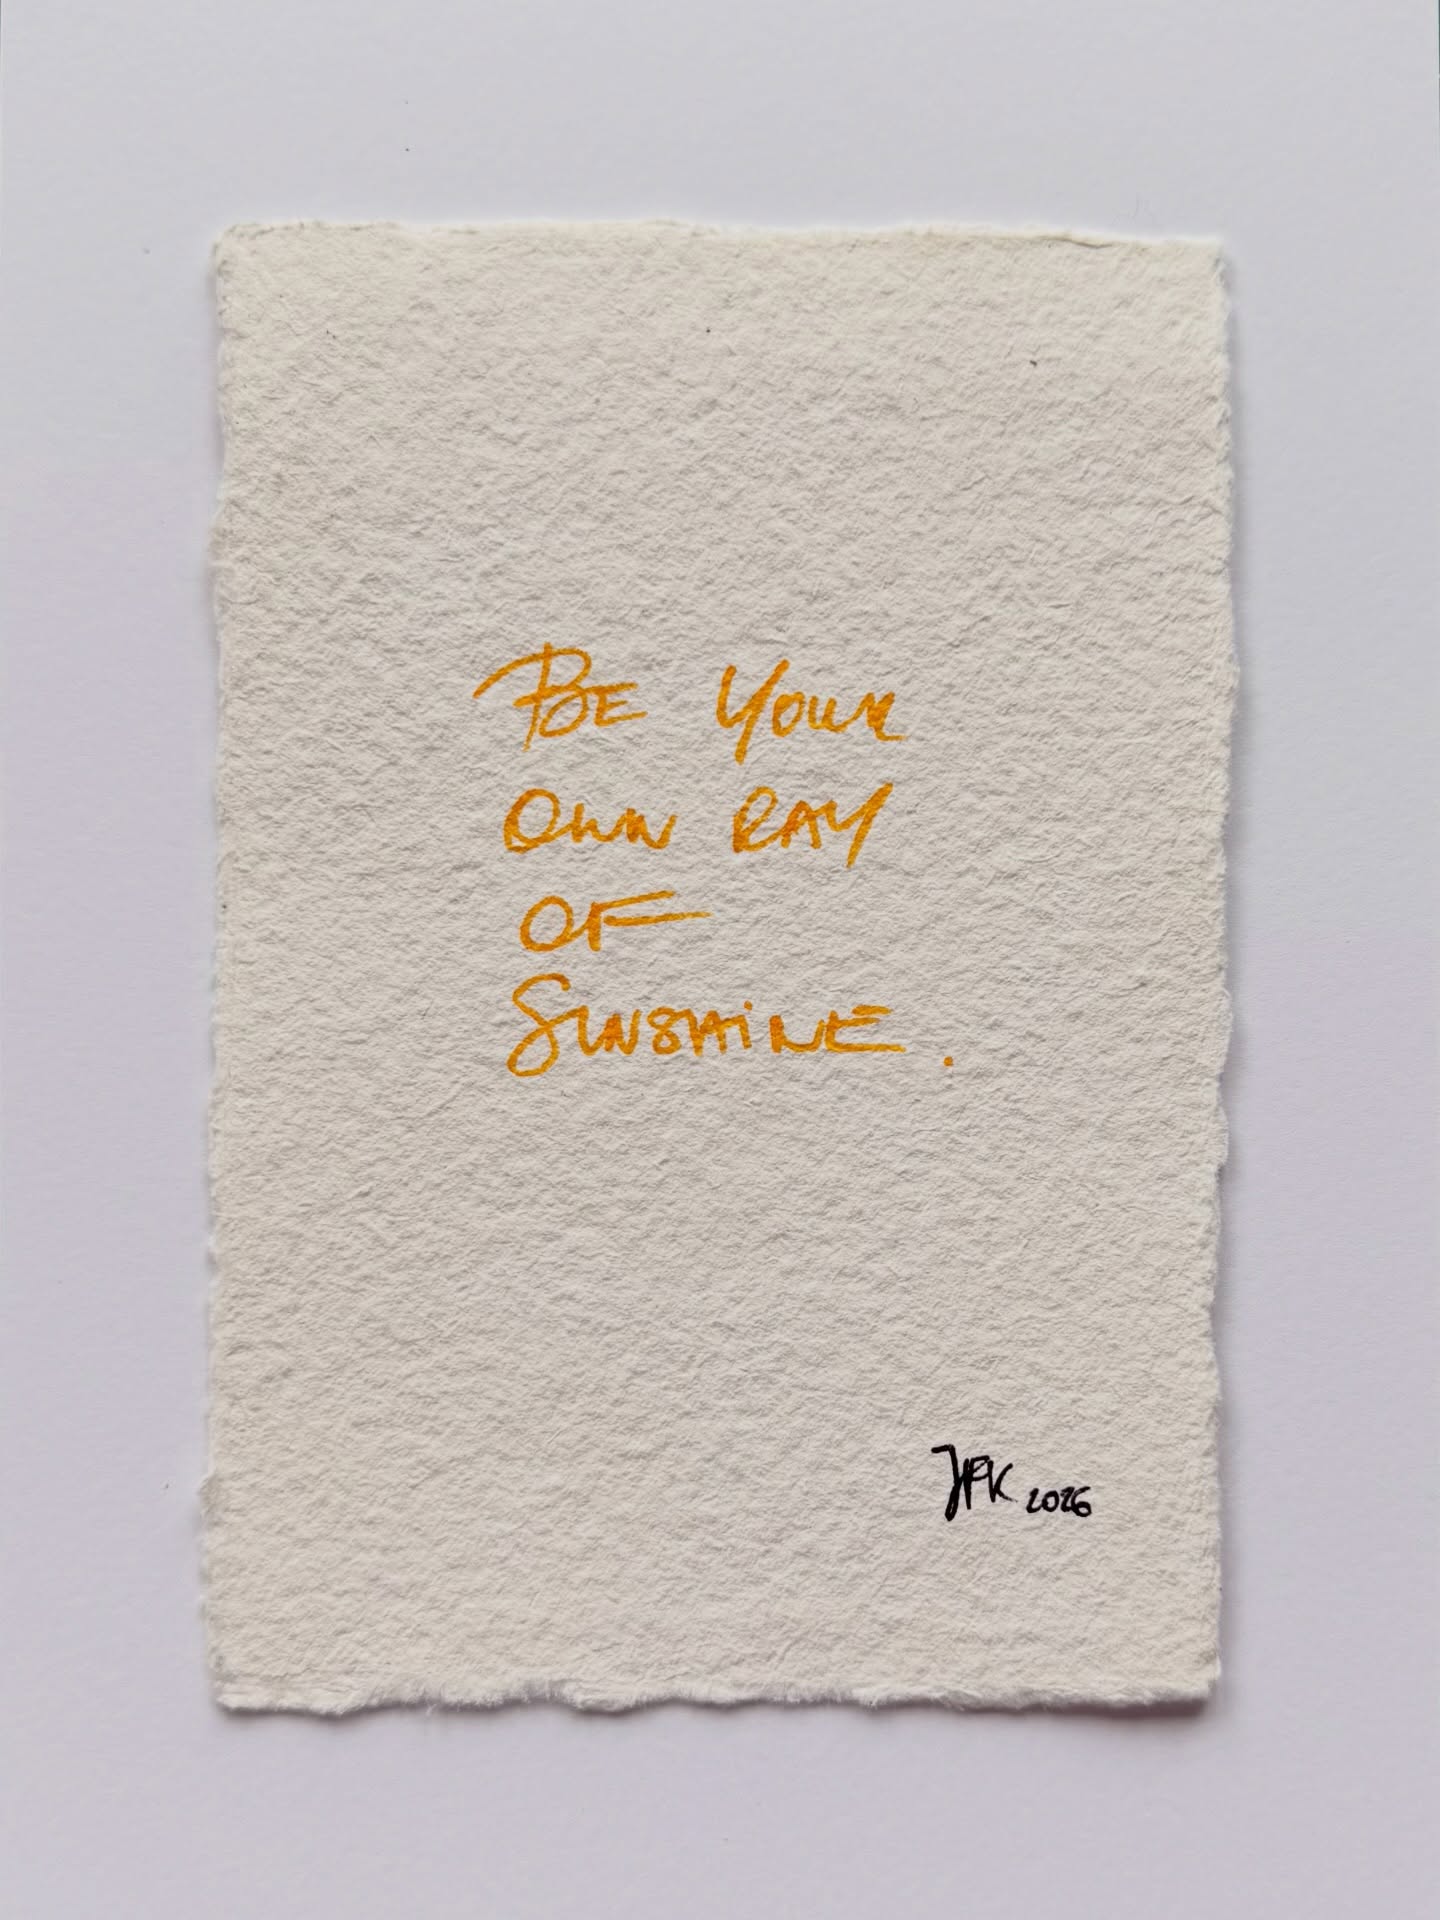 Be Your
Own Ray
Of
Sunshine.
JFK 2026